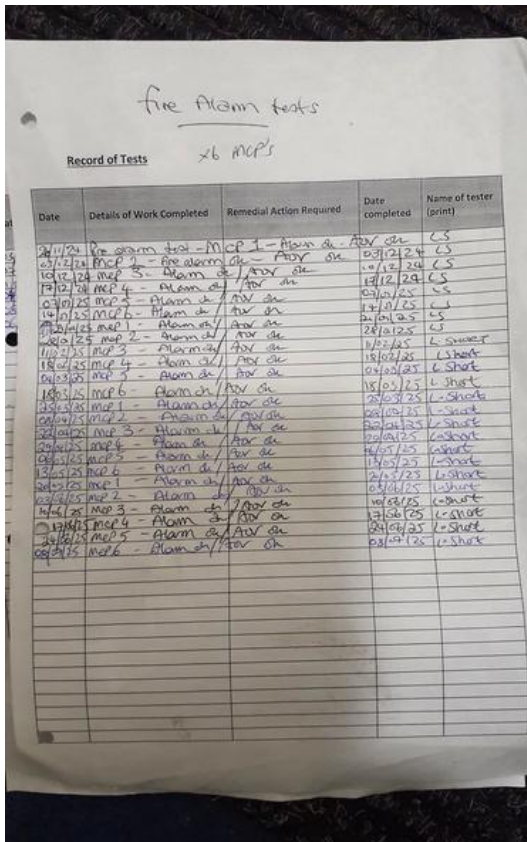 Fire Alarm tests
x6 MCP's
Record of Tests
Date Details of Work Completed Remedial Action Required Date completed Name of tester (print)
26/11/24 Fire alarm test - MCP 1 - Alarm ok - Aov ok LS
03/12/24 MCP 2 - Fire alarm ok - Aov ok 03/12/24 LS
10/12/24 mcp 3 - Alarm ok / Aov ok 10/12/24 LS
17/12/24 mcp 4 - Alarm ok / Aov ok 17/12/24 LS
07/01/25 mcp 5 - Alarm ok / Aov ok 07/01/25 LS
14/01/25 mcp 6 - Alarm ok / Aov ok 14/01/25 LS
21/01/25 mcp 1 - Alarm ok / Aov ok 21/01/25 LS
28/01/25 mcp 2 - Alarm ok / Aov ok 28/01/25 LS
11/02/25 mcp 3 - Alarm ok / Aov ok 11/02/25 L SHORT
18/02/25 mcp 4 - Alarm ok / Aov ok 18/02/25 L Short
04/03/25 mcp 5 - Alarm ok / Aov ok 04/03/25 L Short
18/03/25 mcp 6 - Alarm ok / Aov ok 18/03/25 L Short
25/03/25 mcp 1 - Alarm ok / Aov ok 25/03/25 L-Short
mcp 2 - Alarm ok / Aov ok L-Short
22/04/25 mcp 3 - Alarm ok / Aov ok 22/04/25 L-Short
29/04/25 mcp 4 - Alarm ok / Aov ok 29/04/25 L-Short
06/05/25 mcp 5 - Alarm ok / Aov ok 06/05/25 L-Short
13/05/25 mcp 6 - Alarm ok / Aov ok 13/05/25 L-Short
mcp 1 - Alarm ok / Aov ok L-Short
03/06/25 mcp 2 - Alarm ok / Aov ok 03/06/25 L-Short
10/06/25 mcp 3 - Alarm ok / Aov ok 10/06/25 L-Short
17/6/25 mcp 4 - Alarm ok / Aov ok 17/06/25 L-Short
24/6/25 mcp 5 - Alarm ok / Aov ok 24/06/25 L-Short
03/07/25 mcp 6 - Alarm ok / Aov ok 03/07/25 L-Short